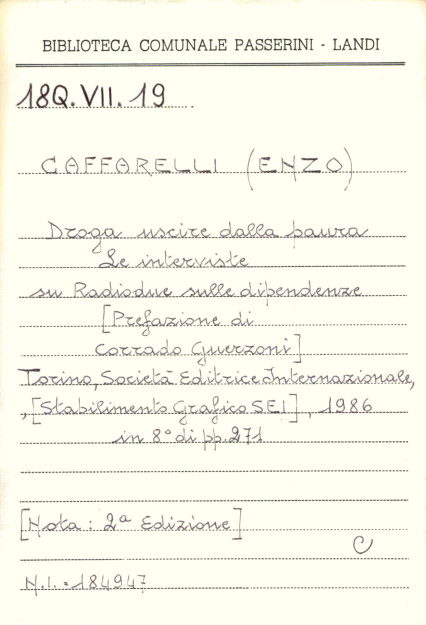 BIBLIOTECA COMUNALE PASSERINI - LANDI
18Q.VII.19
CAFFARELLI (ENZO)
Droga uscire dalla paura
Le interviste
su Radiodue sulle dipendenze
[Prefazione di
Corrado Guerzoni]
Torino, Società Editrice Internazionale,
, [Stabilimento Grafico SEI], 1986
in 8° di pp. 271
[Nota : 2ª Edizione]
C
N.I. = 184947